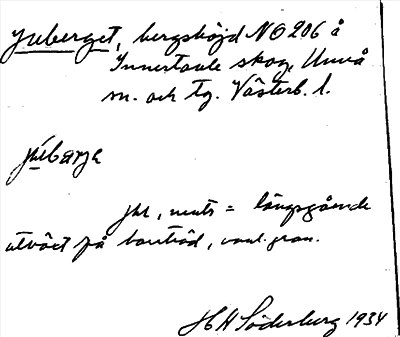 Juberget, bergshöjd NO 206 å
Innertavle skog, Umeå
sn. och tg. Västerb. l.
júbærje
ju, neutr = längsgående
utväxt på barrträd, vanl. gran.
H Söderberg 1934